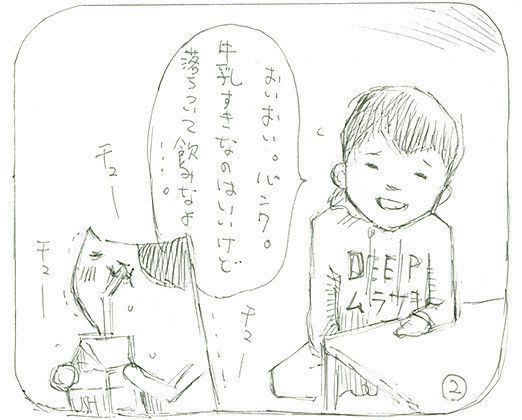 おいおい。パンク。
牛乳すきなのはいいけど
落ちついて飲みなよ
……。
チュー
チュー
チュー
……
DEEP
ムラサキ
USH
②